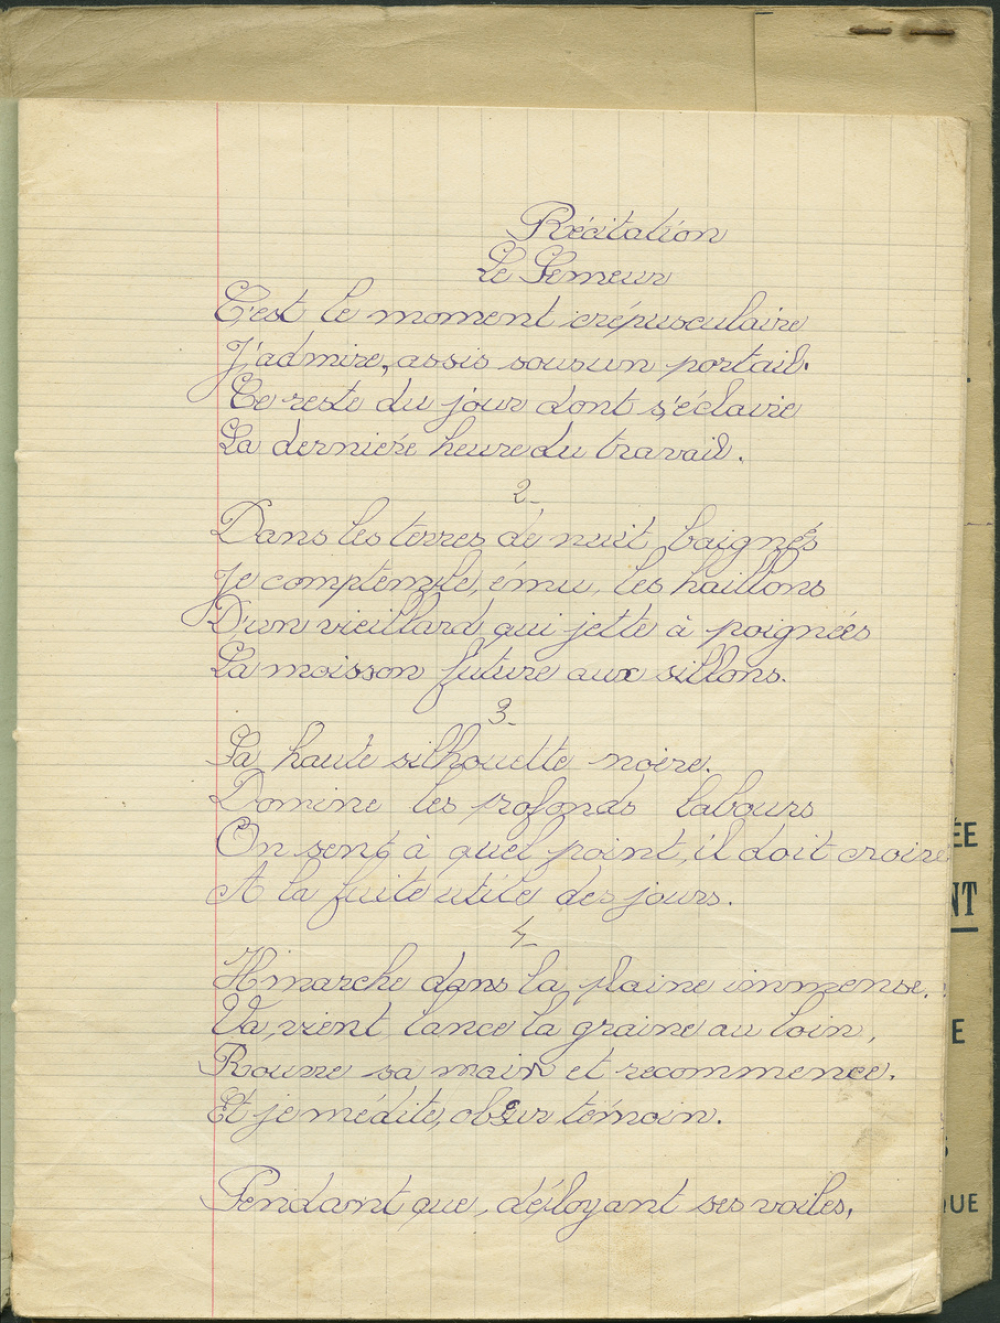 Récitation
Le Semeur
C'est le moment crépusculaire
J'admire, assis sous un portail.
Ce reste du jour dont s'éclaire
La dernière heure du travail.
2_
Dans les terres de nuit baignés
Je comptemple, ému, les haillons
D'un vieillard qui jette à poignées
La moisson future aux sillons.
3_
Sa haute silhouette noire.
Domine les profonds labours
On sent à quel point, il doit croire
A la fuite utile des jours.
4_
Il marche dans la plaine immense.
Va, vient, lance la graine au loin,
Rouvre sa main et recommence.
Et je médite, obscur témoin.
Pendant que, déployant ses voiles,
ÉE
NT
E
QUE